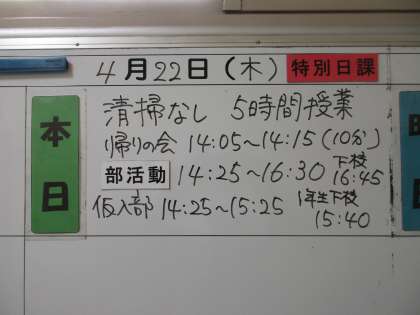 4月22日(木) 特別日課
本日
清掃なし 5時間授業
帰りの会 14:05~14:15(10分)
部活動 14:25~16:30 下校 16:45
仮入部 14:25~15:25 1年生下校 15:40